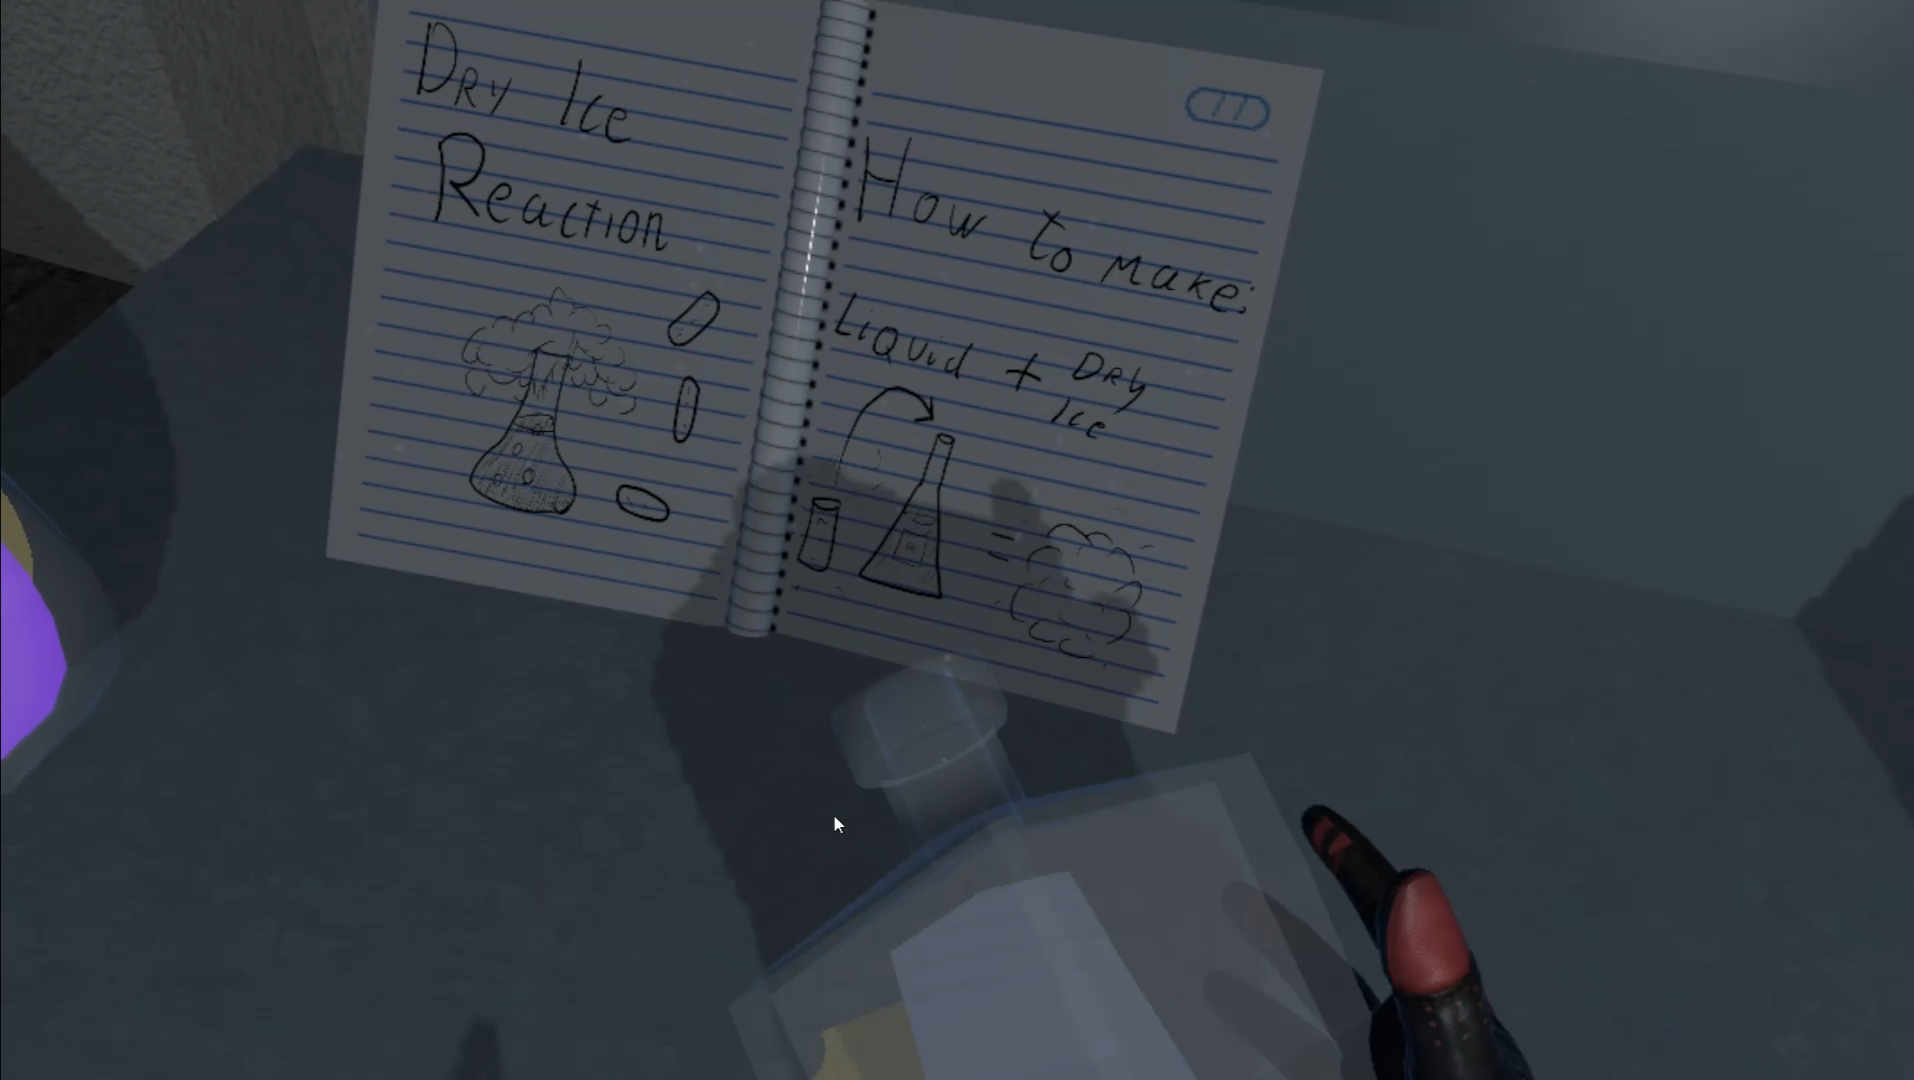 Dry Ice
Reaction
How to make:
Liquid + Dry
Ice